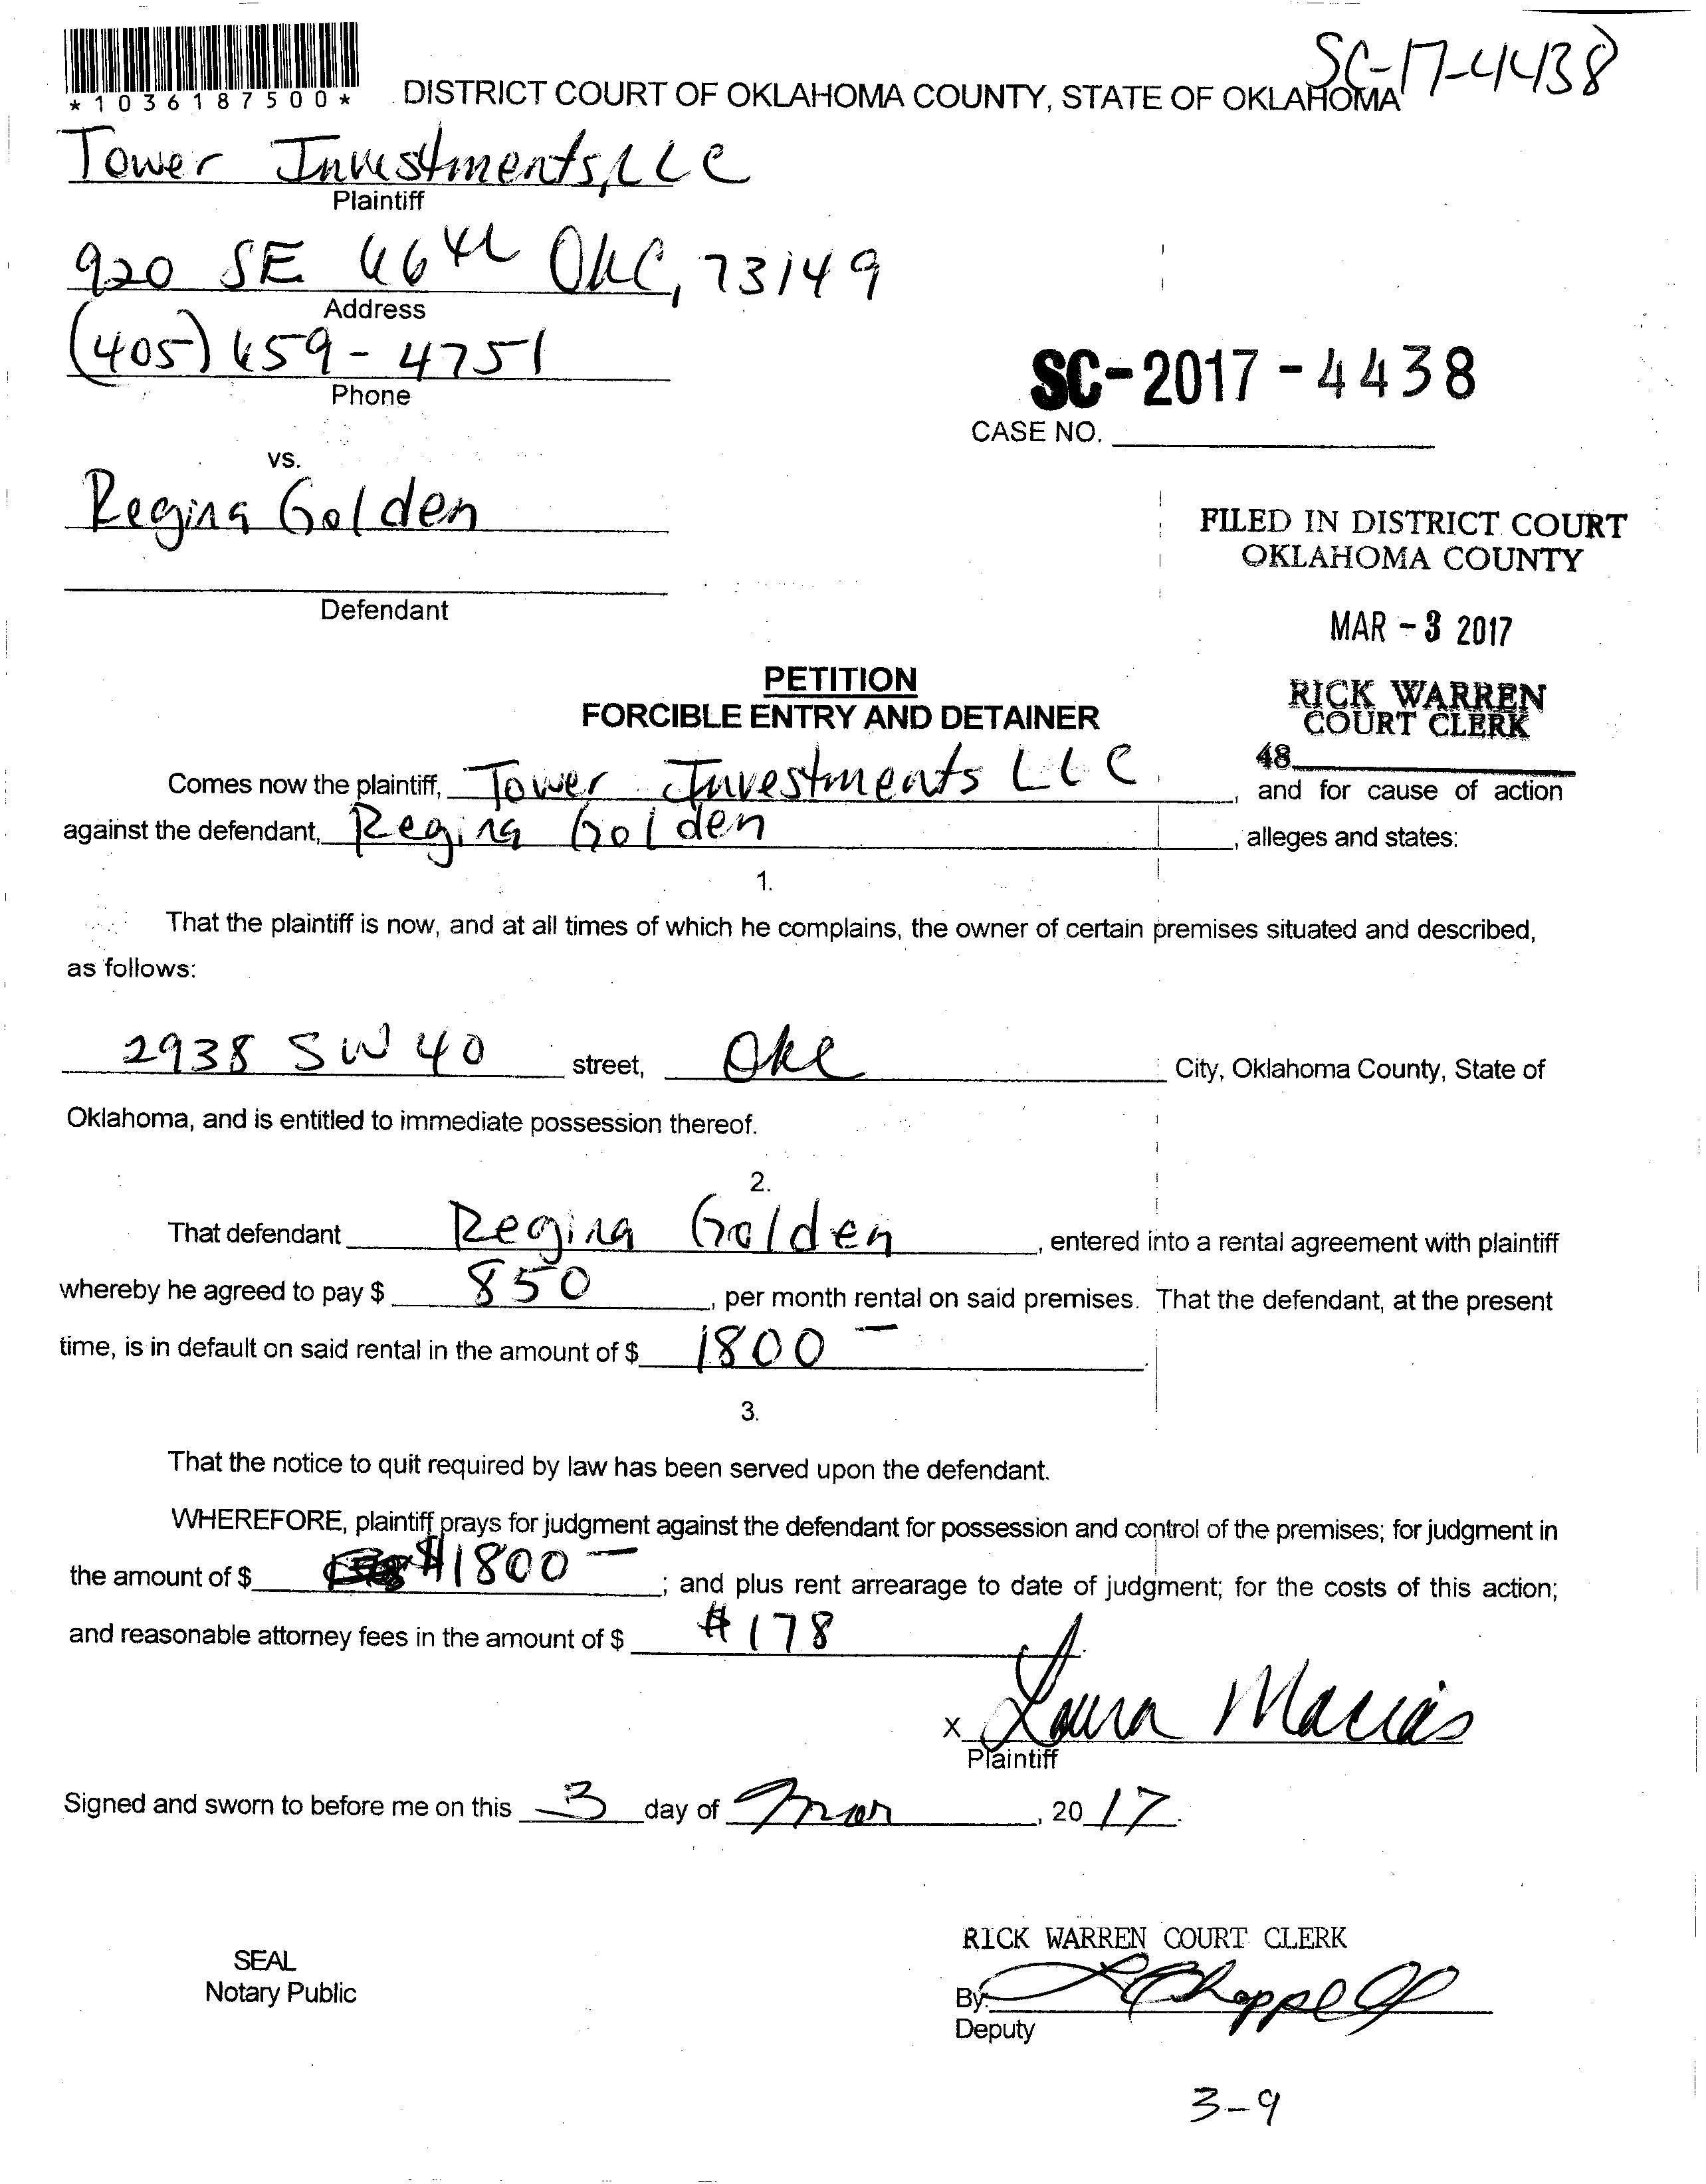 SC-17-4438
*1036187500*
DISTRICT COURT OF OKLAHOMA COUNTY, STATE OF OKLAHOMA
Tower Investments, LLC
Plaintiff
920 SE 66th OKC, 73149
Address
(405) 659-4751
Phone
SC-2017-4438
CASE NO.
vs.
Regina Golden
FILED IN DISTRICT COURT
OKLAHOMA COUNTY
Defendant
MAR -3 2017
PETITION
FORCIBLE ENTRY AND DETAINER
RICK WARREN
COURT CLERK
48
Comes now the plaintiff, Tower Investments LLC, and for cause of action
against the defendant, Regina Golden, alleges and states:
1.
That the plaintiff is now, and at all times of which he complains, the owner of certain premises situated and described,
as follows:
2938 SW 40 street, OKC City, Oklahoma County, State of
Oklahoma, and is entitled to immediate possession thereof.
2.
That defendant Regina Golden, entered into a rental agreement with plaintiff
whereby he agreed to pay $ 850, per month rental on said premises. That the defendant, at the present
time, is in default on said rental in the amount of $ 1800 –.
3.
That the notice to quit required by law has been served upon the defendant.
WHEREFORE, plaintiff prays for judgment against the defendant for possession and control of the premises; for judgment in
the amount of $ $1800 –; and plus rent arrearage to date of judgment; for the costs of this action;
and reasonable attorney fees in the amount of $ $178.
x Laura Macias
Plaintiff
Signed and sworn to before me on this 3 day of mar, 2017.
RICK WARREN COURT CLERK
SEAL
Notary Public
By: Chappell
Deputy
3-9